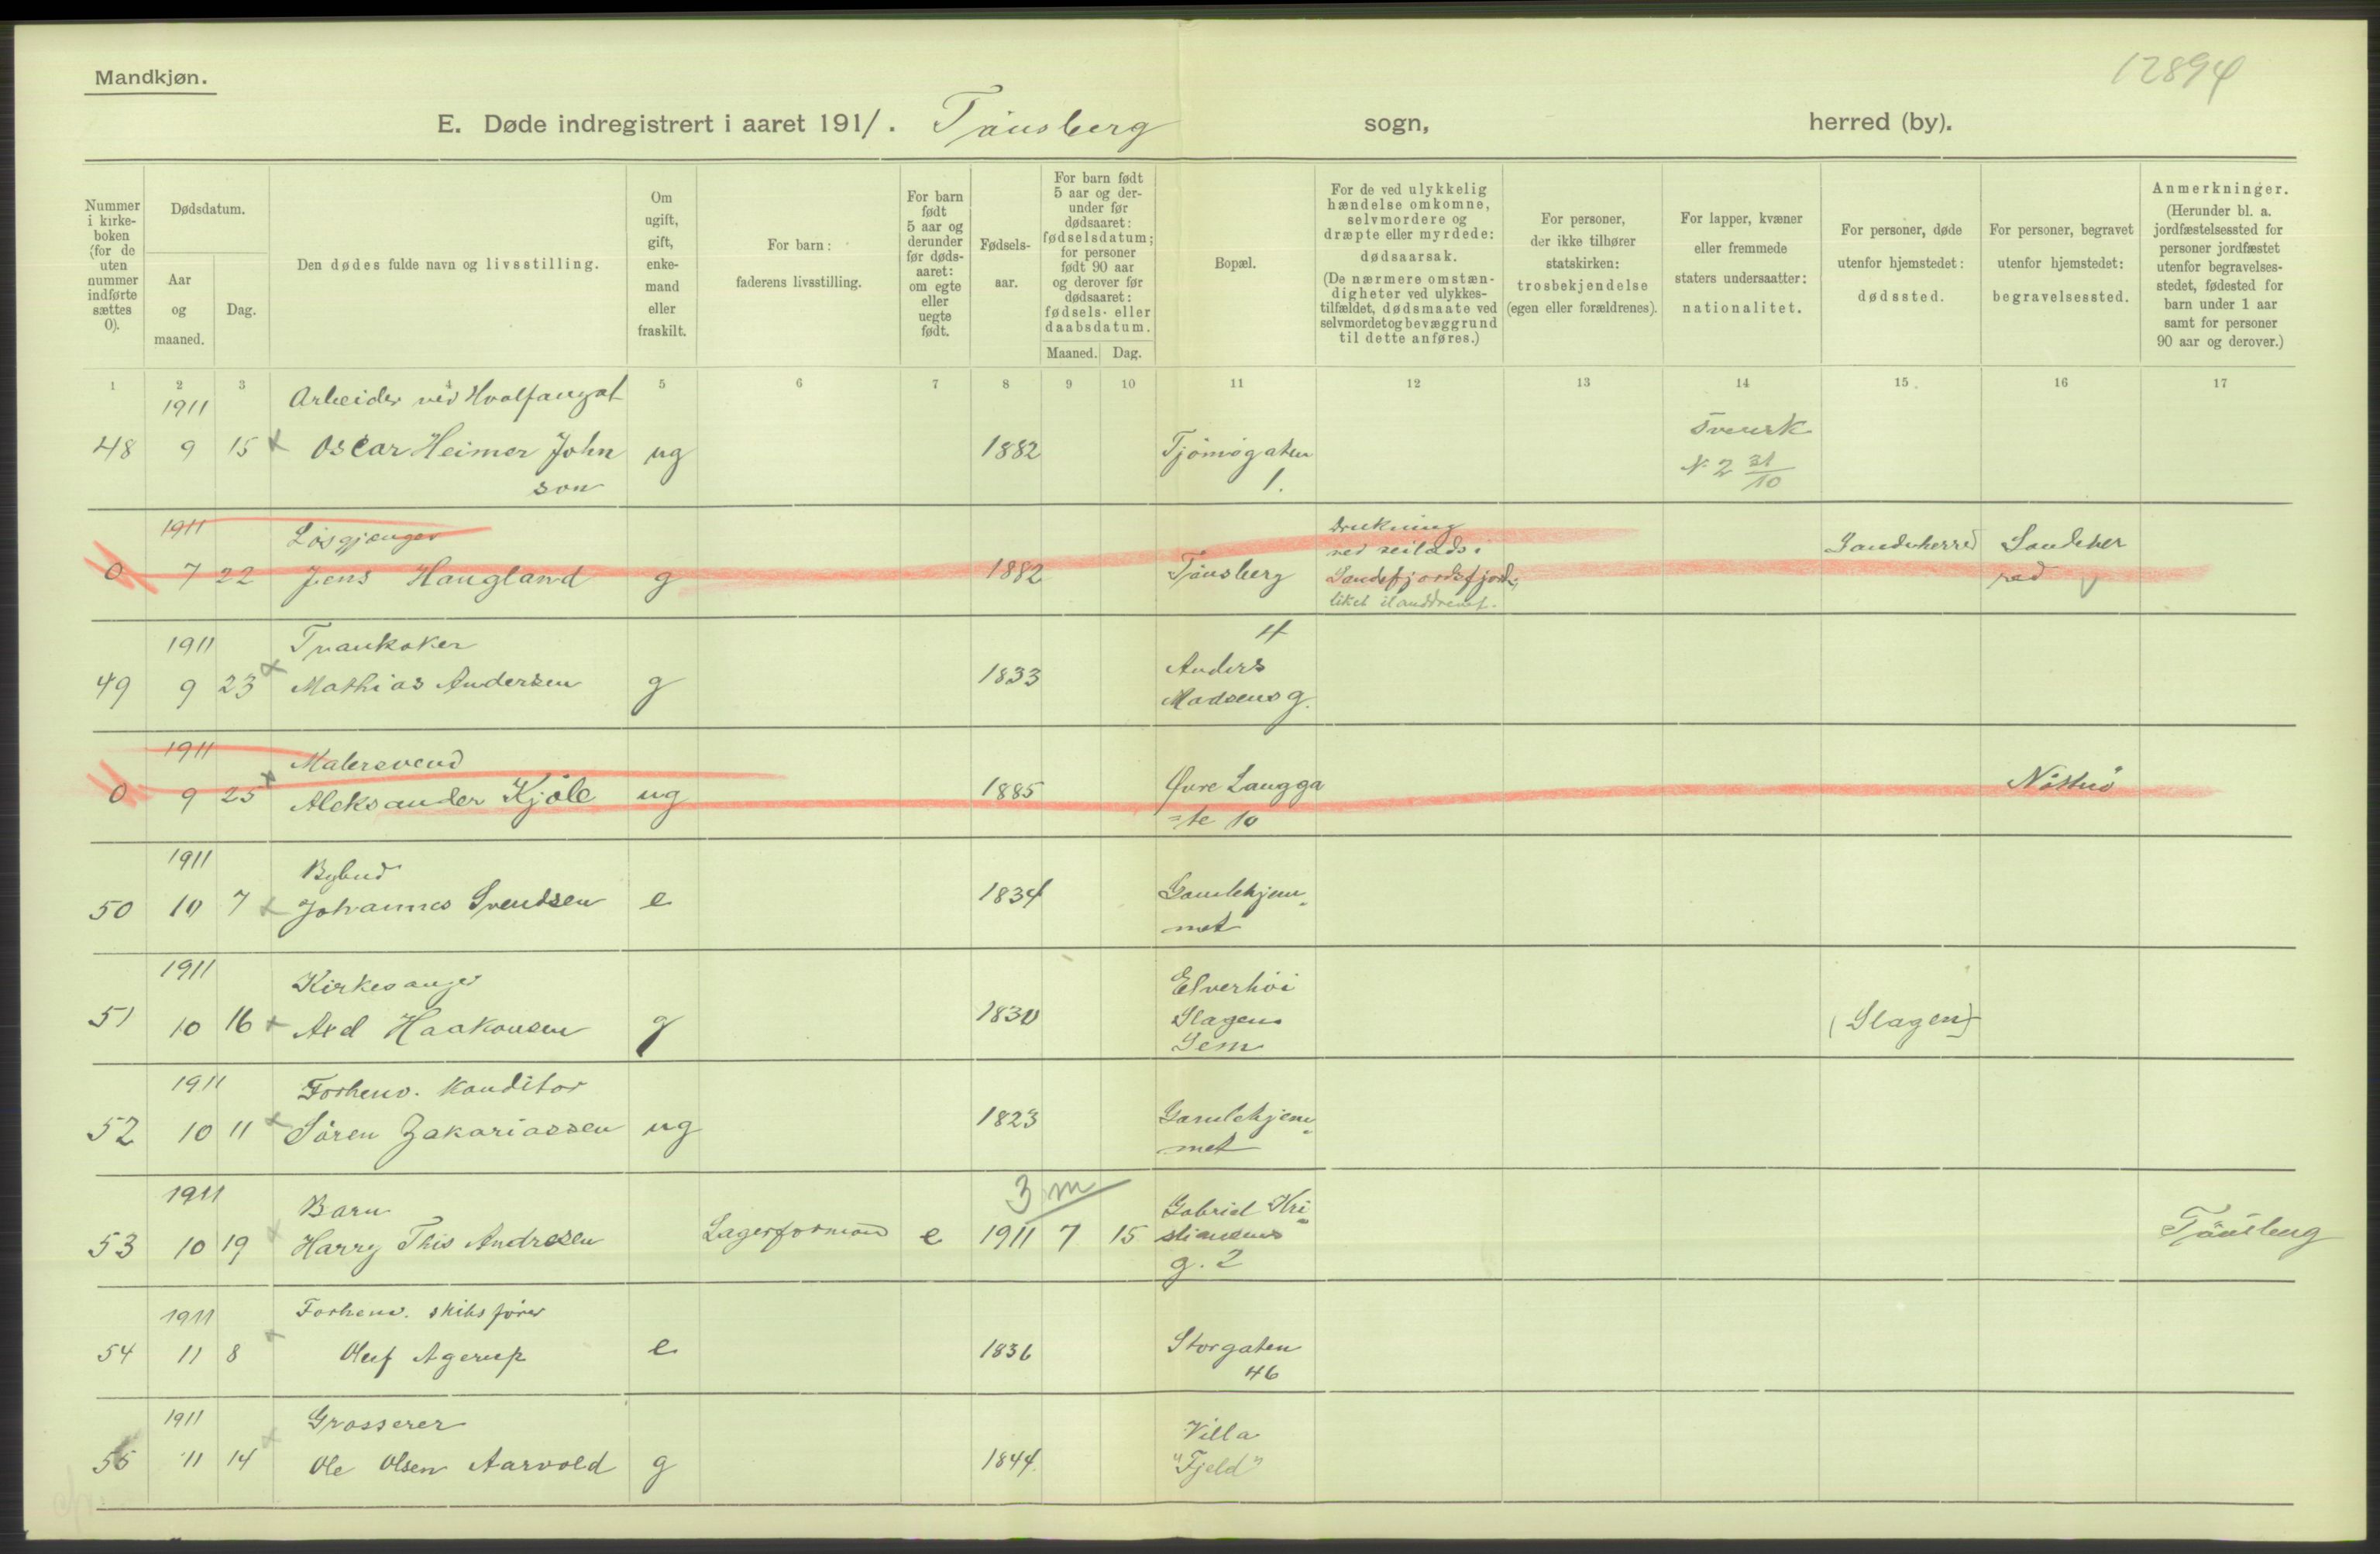 Mandkjøn.
12894
E. Døde indregistrert i aaret 1911. Tønsberg sogn, herred (by).
Nummer i kirke- boken (for de uten nummer indførte sættes 0).
Dødsdatum.
Aar og maaned.
Dag.
Den dødes fulde navn og livsstilling.
Om ugift, gift, enke- mand eller fraskilt.
For barn: faderens livsstilling.
For barn født 5 aar og derunder før døds- aaret: om egte eller uegte født.
Fødsels- aar.
For barn født 5 aar og der- under før dødsaaret: fødselsdatum; for personer født 90 aar og derover før dødsaaret: fødsels- eller daabsdatum.
Maaned. Dag.
Bopæl.
For de ved ulykkelig hændelse omkomne, selvmordere og dræpte eller myrdede: dødsaarsak. (De nærmere omstæn- digheter ved ulykkes- tilfældet, dødsmaate ved selvmordet og bevæggrund til dette anføres.)
For personer, der ikke tilhører statskirken: trosbekjendelse (egen eller forældrenes).
For lapper, kvæner eller fremmede staters undersaatter: nationalitet.
For personer, døde utenfor hjemstedet: dødssted.
For personer, begravet utenfor hjemstedet: begravelsessted.
Anmerkninger. (Herunder bl. a. jordfæstelsessted for personer jordfæstet utenfor begravelses- stedet, fødested for barn under 1 aar samt for personer 90 aar og derover.)
1 2 3 4 5 6 7 8 9 10 11 12 13 14 15 16 17
1911 Arbeider ved Hvalfangst
48 9 15 x Oscar Heimer John ug 1882 Tjømøgaten Svensk
son 1. N. 2 31/10
1911 Løsgjænger Drukning
ved seilads i Sandeherred Sandeher
0 7 22 Jens Haugland g 1882 Tønsberg Sandefjordsfjord; red
liket ilanddrevet.
1911 Trankoker 4
49 9 23 x Mathias Andersen g 1833 Anders
Madsens g.
1911 Malersvend
0 9 25 x Aleksander Kjøle ug 1885 Øvre Langga Nøtterø
=te 10
1911 Bybud
50 10 7 x Johannes Svendsen e 1834 Gamlehjem
met
1911 Kirkesanger Elverhøi
51 10 16 x Axd Haakonsen g 1830 Slagen (Slagen)
Sem
1911 Forhenv. Konditor
52 10 11 x Søren Zakariassen ug 1823 Gamlehjem
met
1911 Barn 3 m Gabriel Kri
53 10 19 x Harry This Andresen Lagerformand e 1911 7 15 stiansens Tønsberg
g. 2
1911 Forhenv. skibsfører
54 11 8 x Oluf Agerup e 1836 Storgaten
46
1911 Grosserer Villa
55 11 14 x Ole Olsen Aarvold g 1844. "Fjeld"